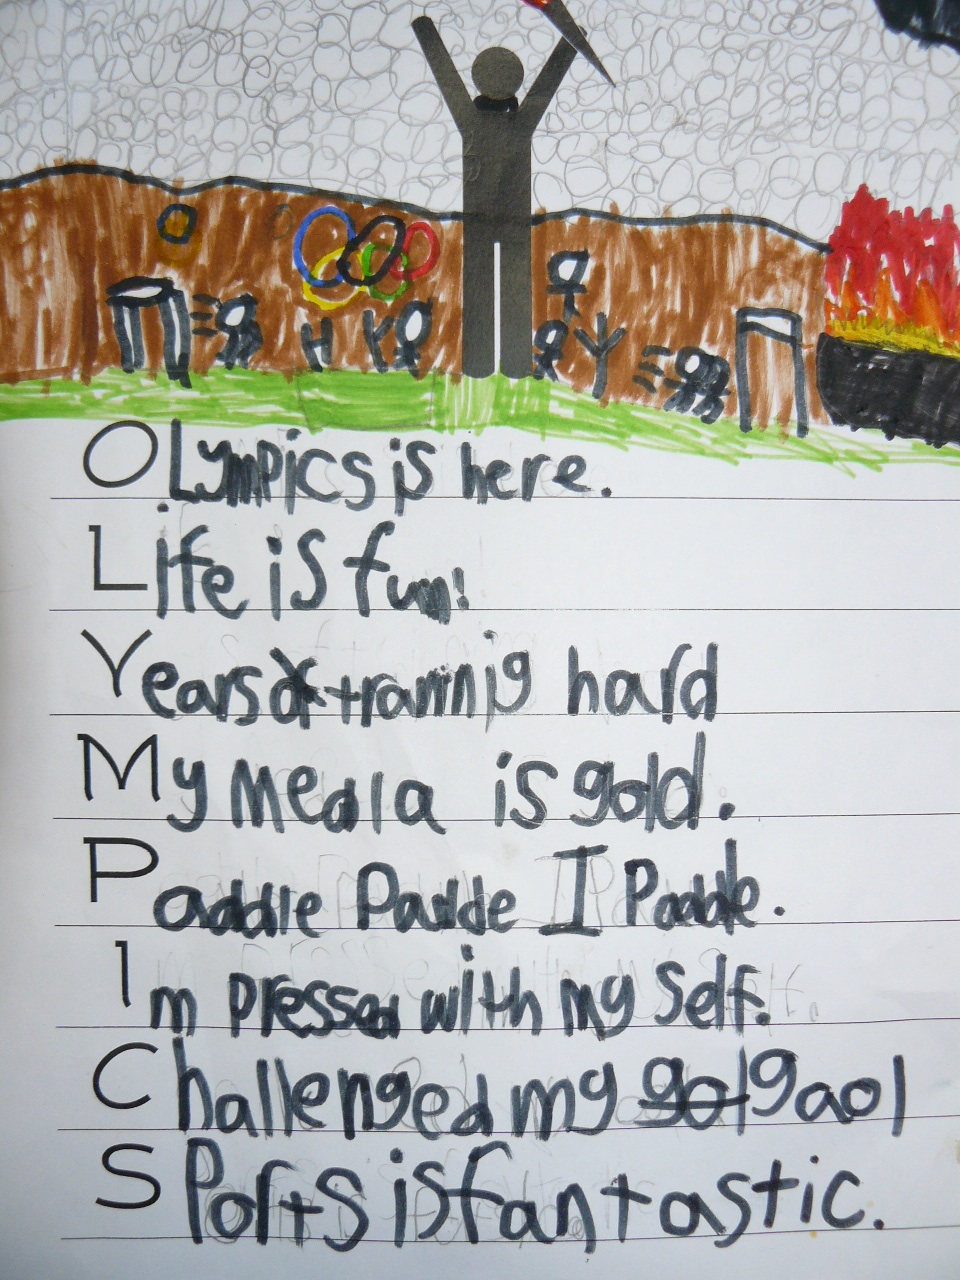 OLympics is here.
Life is fun!
Years of traninig hard
My medla is gold.
Paddle Paddle I Paddle.
Im pressed with my self.
Challenged my gol gaol
SPorts is fantastic.